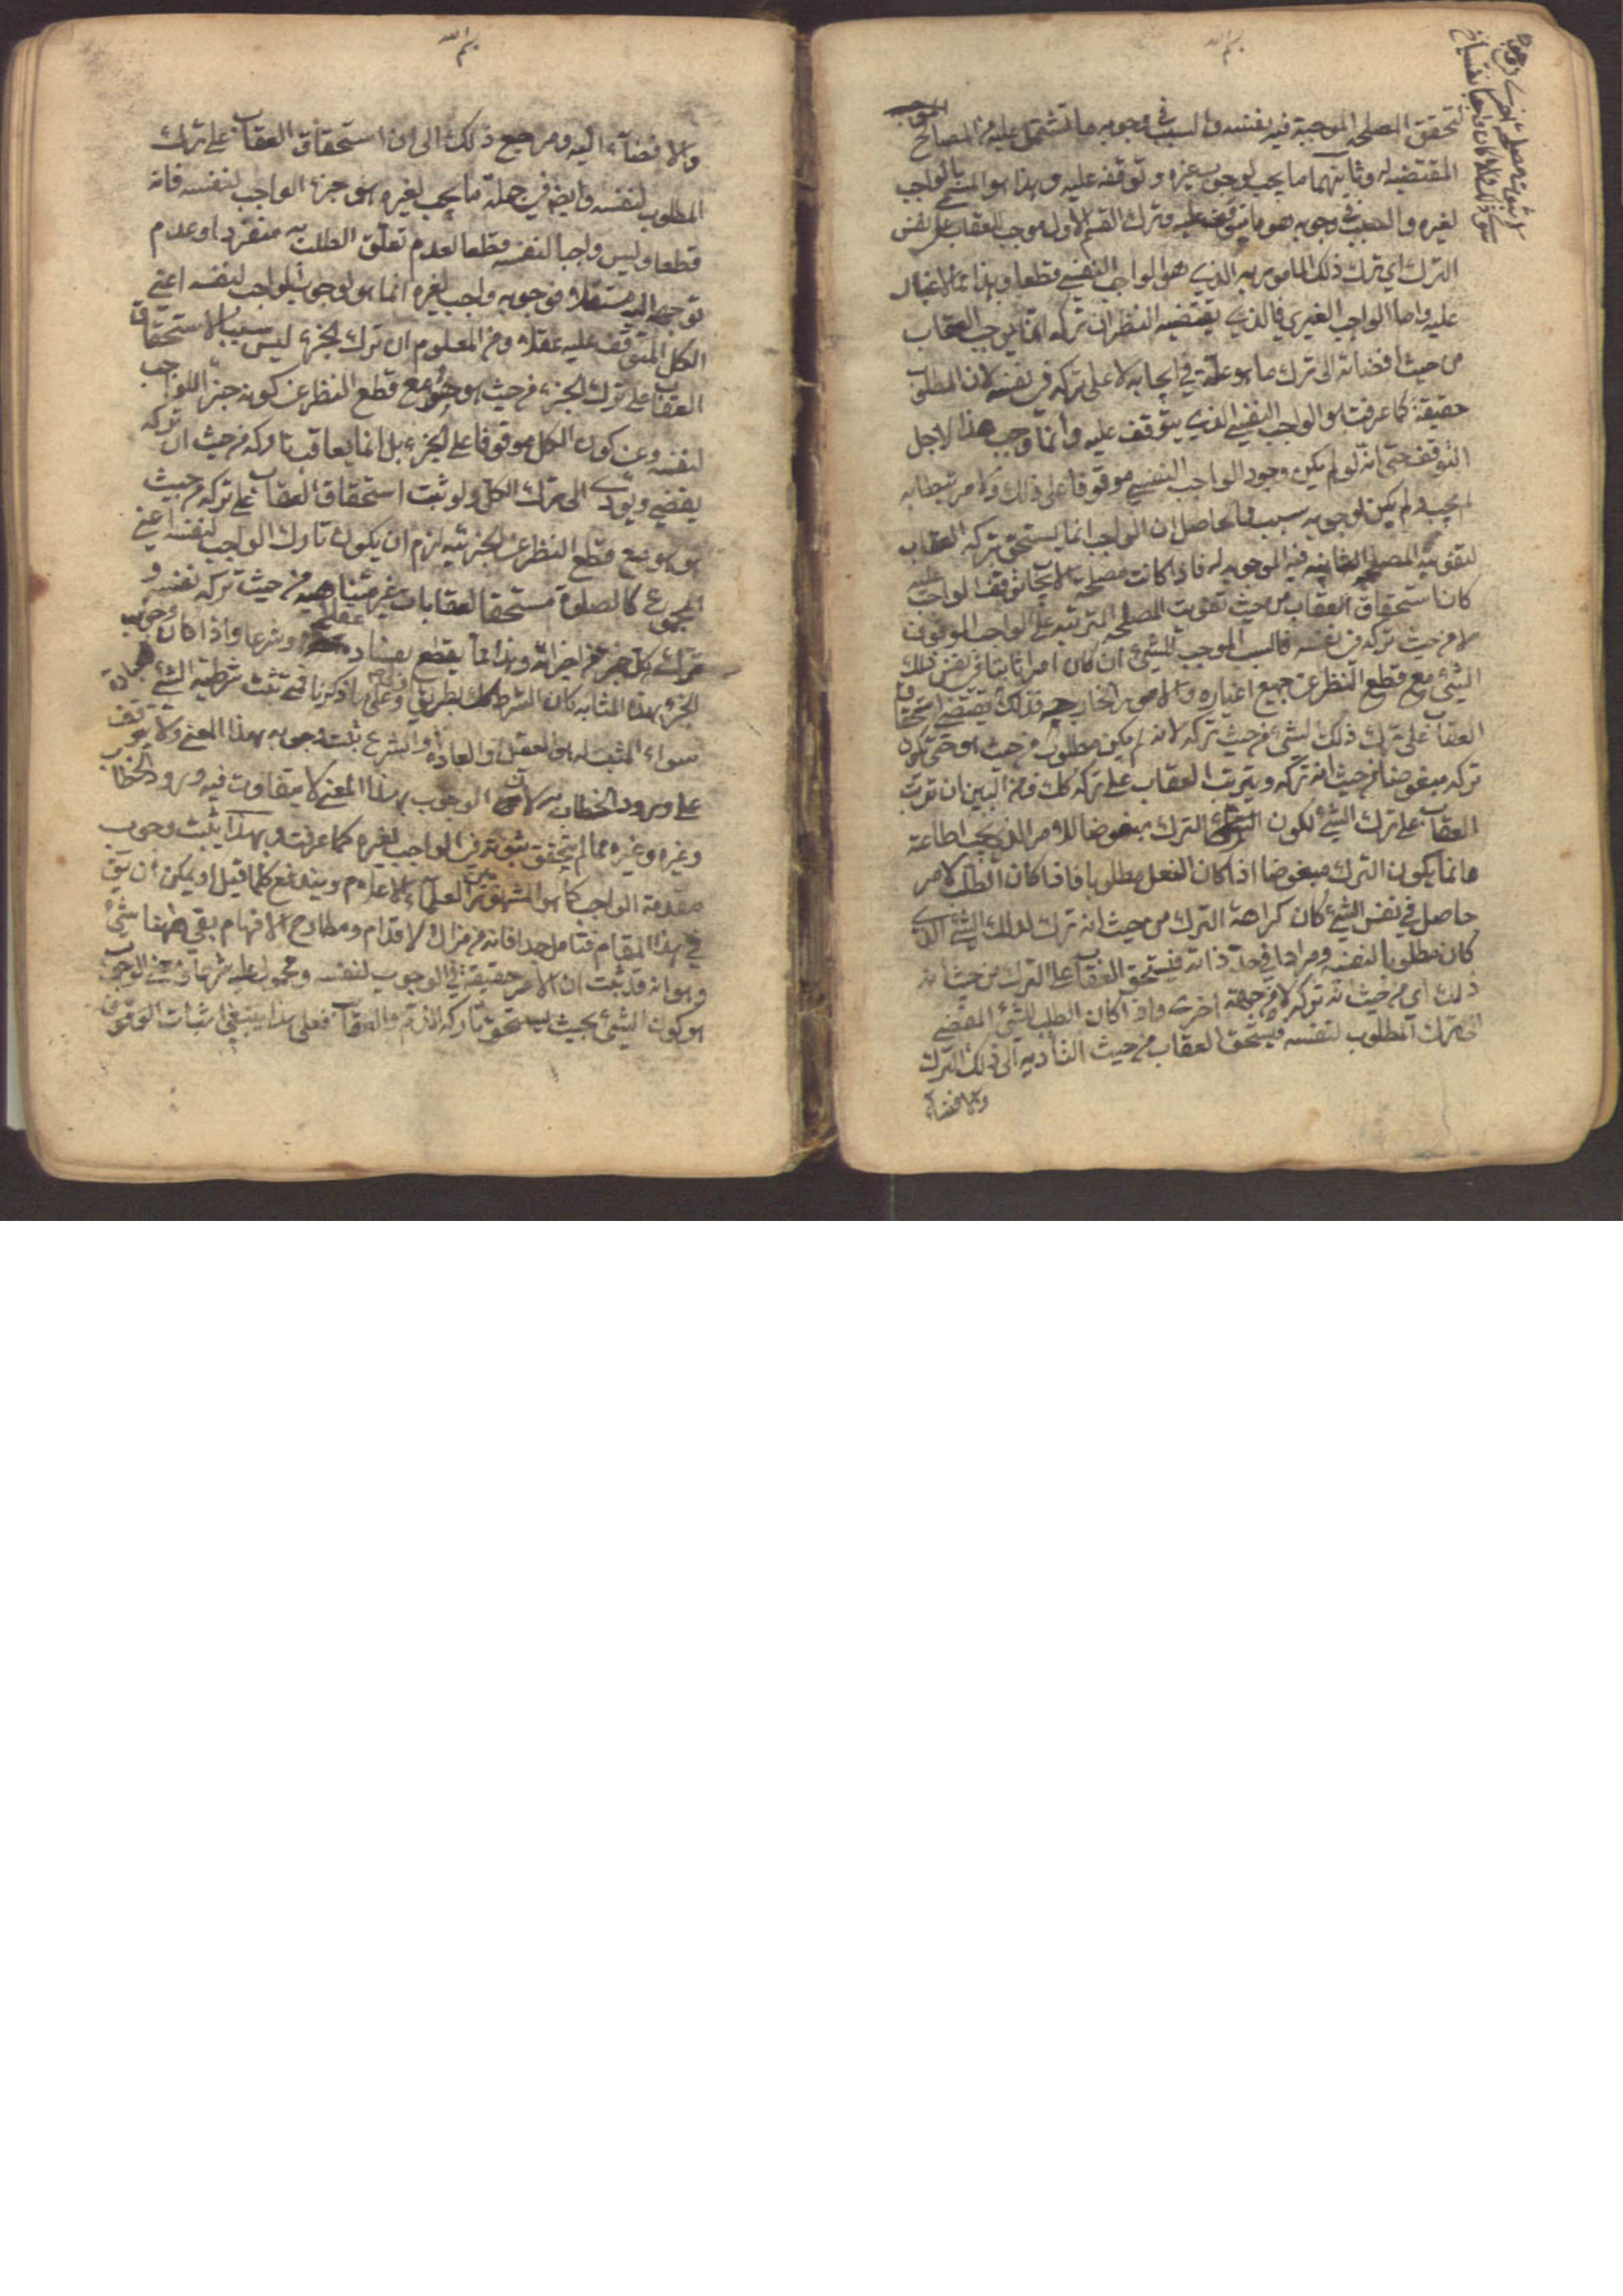 بسم الله
لتحقق المصلحة الموجبة فيه بنفسه والسبب في وجوبه ما تشتمل عليه من المصالح
المقتضية له وثانيهما ما يجب لوجوب غيره وتوقفه عليه وهذا هو المسمى بالواجب
لغيره والسبب في وجوبه هو ما يتوقف عليه وترك القسم الاول موجب للعقاب على نفس
الترك اي ترك ذلك المامور به الذي هو الواجب النفسي قطعا وهذا مما لا غبار
عليه واما الواجب الغيري فالذي يقتضيه النظر ان تركه انما يوجب العقاب
من حيث افضائه الى ترك ما هو علة في ايجابه لا على تركه في نفسه لان المطلوب
حقيقة كما عرفت هو الواجب النفسي الذي يتوقف عليه وانما وجب هذا لاجل
التوقف حتى انه لو لم يكن وجود الواجب النفسي موقوفا على ذلك ولا مرتبطا به
لم يجب ولم يكن لوجوبه سبب فالحاصل ان الواجب انما يستحق بتركه العقاب
لتفويته المصلحة الموجبة له فاذا كانت مصلحة الايجاب توقف الواجب عليه
كان استحقاق العقاب من حيث تفويت المصلحة المترتبة على الواجب الموقوف
لا من حيث تركه في نفسه فالسبب الموجب للشيء ان كان امرا ثابتا في نفس ذلك
الشيء مع قطع النظر عن جميع اغياره والامور الخارجة فذلك يقتضي استحقاق
العقاب على ترك ذلك الشيء من حيث تركه لانه لم يكن مطلوبا من حيث هو حتى يكون
تركه مبغوضا من حيث انه تركه ويترتب العقاب على تركه كك ومن البين ان ترتب
العقاب على ترك الشيء لكون الترك مبغوضا للامر الذي يجب اطاعته
وانما يكون الترك مبغوضا اذا كان الفعل مطلوبا فاذا كان الطلب لامر
حاصل في نفس الشيء كان كراهة الترك من حيث انه ترك لذلك الشيء الذي
كان مطلوبا لنفسه ومرادا في حد ذاته فيستحق العقاب على الترك من حيث انه
ذلك اي من حيث انه ترك لا من جهة اخرى واذا كان الطلب للشيء المفضي
الى ترك المطلوب لنفسه فيستحق العقاب من حيث التادية الى ذلك الترك
والافضاء
بسم الله
والافضاء اليه ومرجع ذلك الى ان استحقاق العقاب على ترك
المطلوب لنفسه وايضا في جملة ما يجب لغيره هو جزء الواجب لنفسه فانه
قطعا وليس واجبا لنفسه قطعا لعدم تعلق الطلب به منفردا وعدم
توجهه اليه مستقلا فوجوبه واجب لغيره انما هو لوجوب الواجب لنفسه اعني
الكل المتوقف عليه عقلا ومن المعلوم ان ترك الجزء ليس سببا لاستحقاق
العقاب على ترك الجزء من حيث هو جزء مع قطع النظر عن كونه جزء للواجب
لنفسه وعن كون الكل موقوفا على الجزء بل انما يعاقب تاركه من حيث ان تركه
يفضي ويؤدي الى ترك الكل ولو ثبت استحقاق العقاب على تركه من حيث
هو هو مع قطع النظر عن الجزئية لزم ان يكون تارك الواجب لنفسه اعني
المجموع كالصلوة مستحقا لعقابات غير متناهية من حيث تركه نفسه و
ترك كل جزء من اجزائه وهذا مما يقطع بفساده عقلا وشرعا واذا كان وجوب
الجزء بهذا المثابة كان الشرط كك بطريق اولى وعلى ما ذكرنا فمتى تثبت شرطية الشيء لعبادة
سواء المثبت له هو العقل والعادة او الشرع ثبت وجوبه بهذا المعنى ولا يتوقف
على ورود الخطاب به لان الوجوب بهذا المعنى لا يتفاوت فيه ورود الخطاب
وغيره وغيره مما لم يتحقق ثبوته في الواجب لغيره كما عرفت وبهذا يثبت وجوب
مقدمة الواجب كما هو المشهور بين العلماء الاعلام ويندفع كلما قيل او يمكن ان يق
في هذا المقام فتامل جدا فانه من مزال الاقدام ومطارح الافهام بقي ههنا شيء
وهو انه قد ثبت ان الامر حقيقة في الوجوب لنفسه ومحمول عليه شرعا ومعنى الوجوب
هو كون الشيء بحيث يستحق تاركه الذم والعقاب فعلى هذا ينبغي اثبات الوقوف